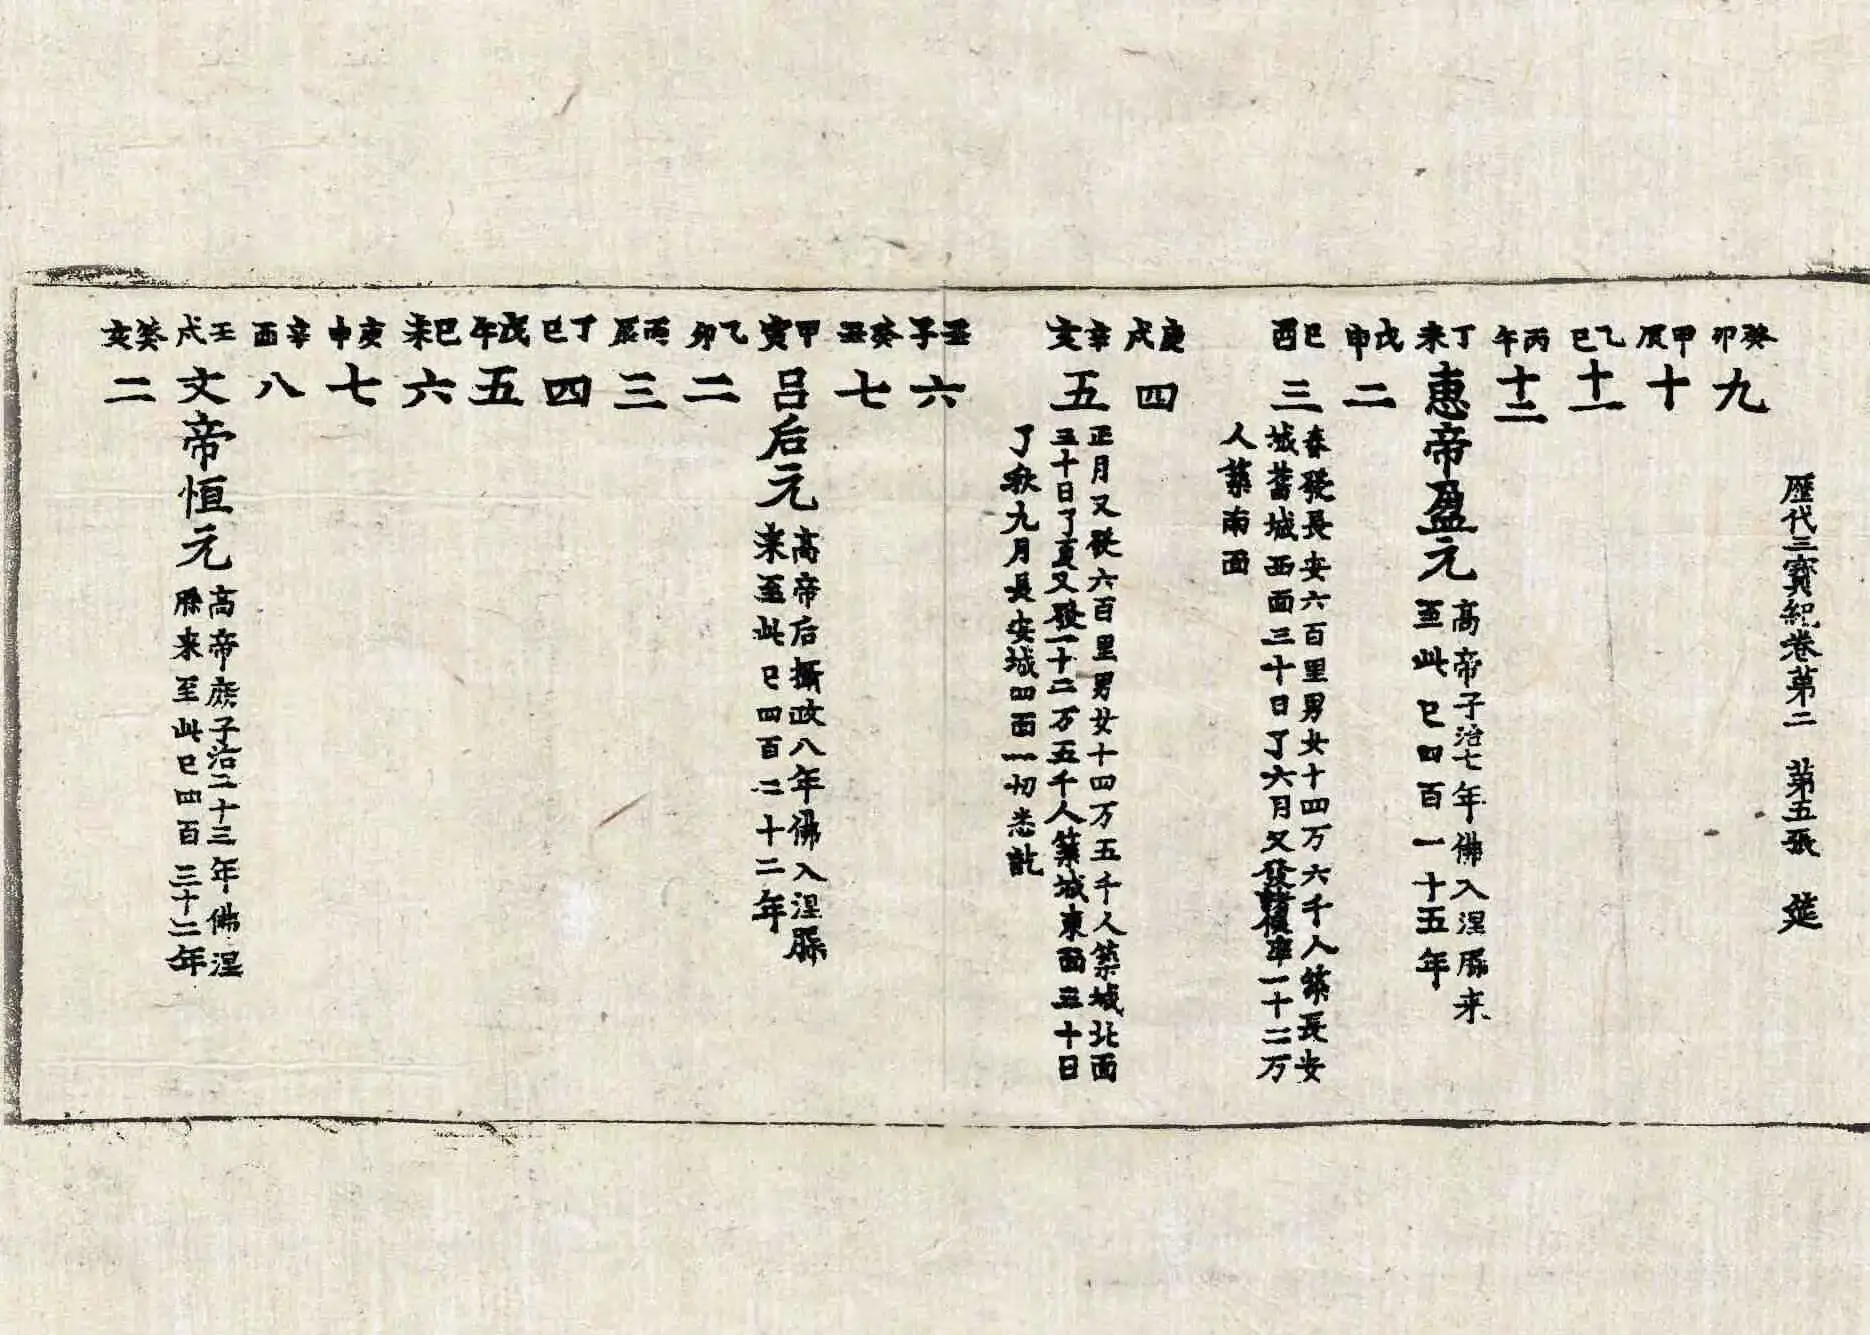 歷代三寶紀卷第二　第五張　莚
癸卯 九
甲辰 十
乙巳 十一
丙午 十二
丁未 惠帝盈元
高帝子治七年佛入涅槃来
至此已四百一十五年
戊申 二
己酉 三
春發長安六百里男女十四万六千人築長安
城舊城西面三十日了六月又發諸侯率一十二万
人築南面
庚戌 四
辛亥 五
正月又發六百里男女十四万五千人築城北面
三十日了夏又發一十二万五千人築城東面三十日
了秋九月長安城四面一切悉訖
壬子 六
癸丑 七
甲寅 呂后元
高帝后攝政八年佛入涅槃
来至此已四百二十二年
乙卯 二
丙辰 三
丁巳 四
戊午 五
己未 六
庚申 七
辛酉 八
壬戌 文帝恒元
高帝庶子治二十三年佛涅
槃来至此已四百三十二年
癸亥 二